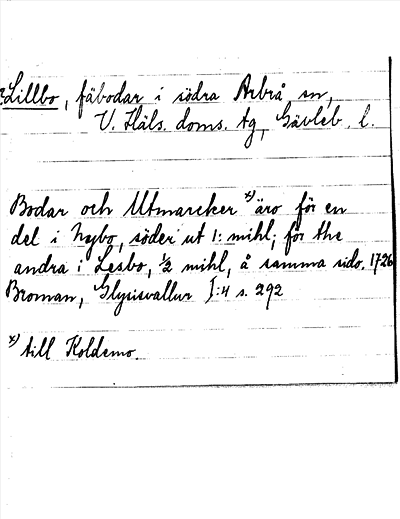 Lillbo, fäbodar i södra Arbrå sn,
V. Häls. doms. tg, Gävleb. l.
Bodar och Utmarcker x) äro för en
del i Nybo, söder ut 1: mihl; för the
andra i Lesbo, ½ mihl, å samma sido. 1726
Broman, Glysisvallur I:4 s. 292
x) till Koldemo.